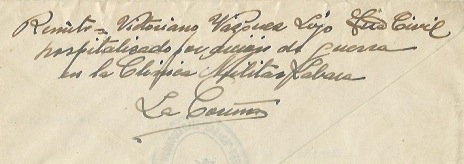 Remite = Victoriano Vázquez Lojo Civil
hospitalizado por acción de guerra
en la Clinica Militar Labaca
La Coruña